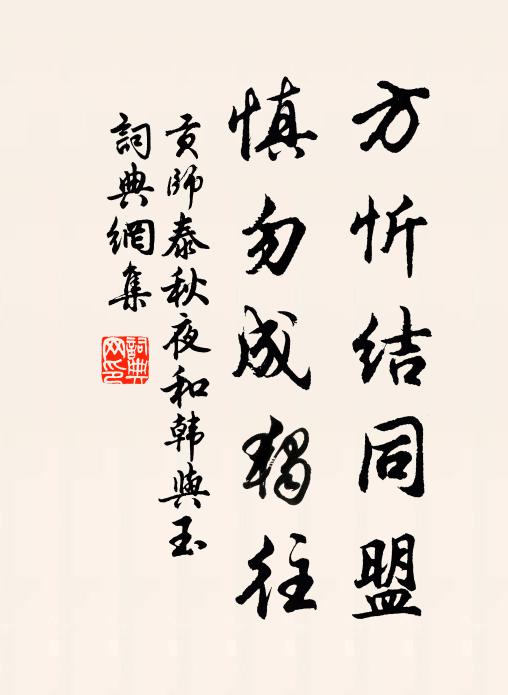 方忻结同盟
慎勿成独往
贡师泰秋夜和韩与玉
词典網集
詞典網印